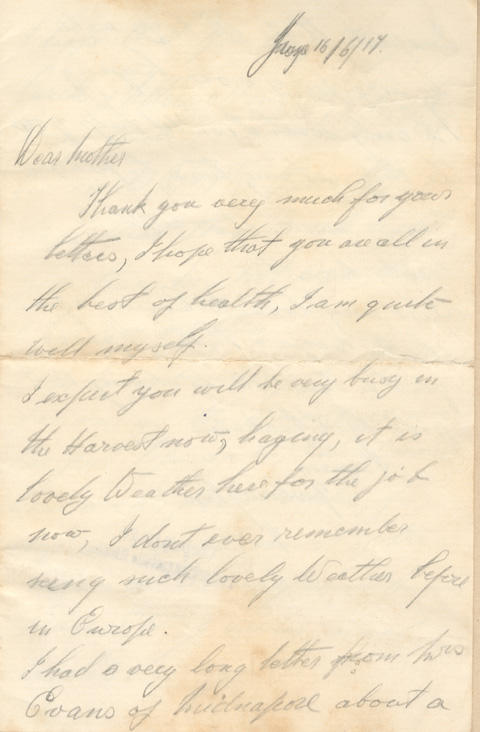 16/6/17.
Dear Mother
Thank you very much for your
letters, I hope that you are all in
the best of health, I am quite
well myself.
I expect you will be very busy in
the Harvest now, haying, it is
lovely Weather here for the job
now, I dont ever remember
seeing such lovely Weather before
in Europe.
I had a very long letter from Mrs
Evans of Midnapore about a